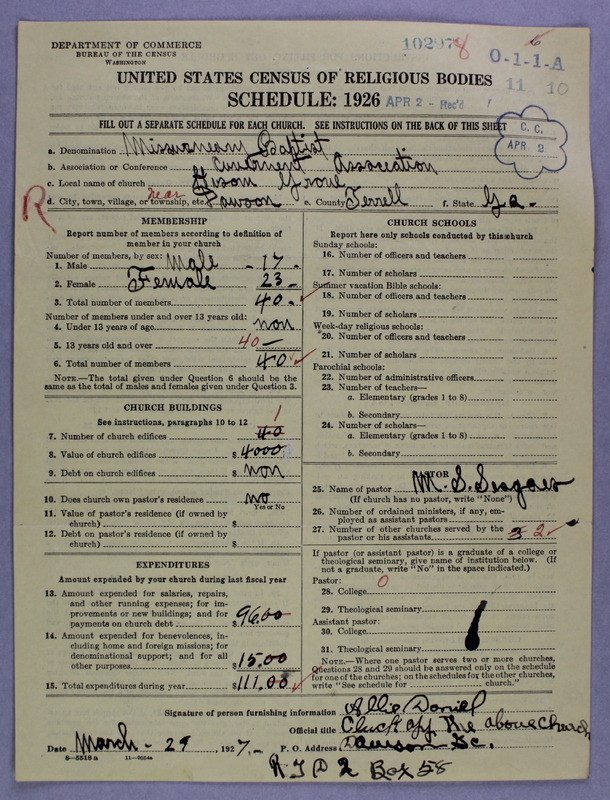 DEPARTMENT OF COMMERCE
BUREAU OF THE CENSUS
WASHINGTON
102978
6
O-1-1-A
11 10
UNITED STATES CENSUS OF RELIGIOUS BODIES
SCHEDULE: 1926
APR 2 - Rec'd
FILL OUT A SEPARATE SCHEDULE FOR EACH CHURCH. SEE INSTRUCTIONS ON THE BACK OF THIS SHEET
C. C.
APR 2
a. Denomination Missurneary Baptist
b. Association or Conference Association
c. Local name of church Grove
R
d. City, town, village, or township, etc. near Dawson e. County Terrell f. State Ga.
MEMBERSHIP
Report number of members according to definition of member in your church
Number of members, by sex:
1. Male Male - 17 -
2. Female Female 23 -
3. Total number of members 40 -
Number of members under and over 13 years old:
4. Under 13 years of age non
5. 13 years old and over 40 -
6. Total number of members 40
NOTE.—The total given under Question 6 should be the
same as the total of males and females given under Question 3.
CHURCH BUILDINGS
See instructions, paragraphs 10 to 12
7. Number of church edifices 40 1
8. Value of church edifices $ 4000
9. Debt on church edifices $ non
10. Does church own pastor's residence no
Yes or No
11. Value of pastor's residence (if owned by
church) $
12. Debt on pastor's residence (if owned by
church) $
EXPENDITURES
Amount expended by your church during last fiscal year
13. Amount expended for salaries, repairs,
and other running expenses; for im-
provements or new buildings; and for
payments on church debt $ 96.00
14. Amount expended for benevolences, in-
cluding home and foreign missions; for
denominational support; and for all
other purposes $ 15.00
15. Total expenditures during year $ 111.00
CHURCH SCHOOLS
Report here only schools conducted by this church
Sunday schools:
16. Number of officers and teachers
17. Number of scholars
Summer vacation Bible schools:
18. Number of officers and teachers
19. Number of scholars
Week-day religious schools:
20. Number of officers and teachers
21. Number of scholars
Parochial schools:
22. Number of administrative officers
23. Number of teachers—
a. Elementary (grades 1 to 8)
b. Secondary
24. Number of scholars—
a. Elementary (grades 1 to 8)
b. Secondary
PASTOR
25. Name of pastor M. S.
(If church has no pastor, write "None")
26. Number of ordained ministers, if any, em-
ployed as assistant pastors
27. Number of other churches served by the
pastor or his assistants 3 2
If pastor (or assistant pastor) is a graduate of a college or
theological seminary, give name of institution below. (If
not a graduate, write "No" in the space indicated.)
Pastor: 0
28. College
29. Theological seminary
Assistant pastor:
30. College
31. Theological seminary
NOTE.—Where one pastor serves two or more churches,
Questions 28 and 29 should be answered only on the schedule
for one of the churches; on the schedules for the other churches,
write "See schedule for church."
Signature of person furnishing information Allie Daniel
Official title Clurk off the above church
Date March - 29, 1927. P. O. Address Dawson Ga.
8—5518 a 11—9554a
R F D 2 Box 58